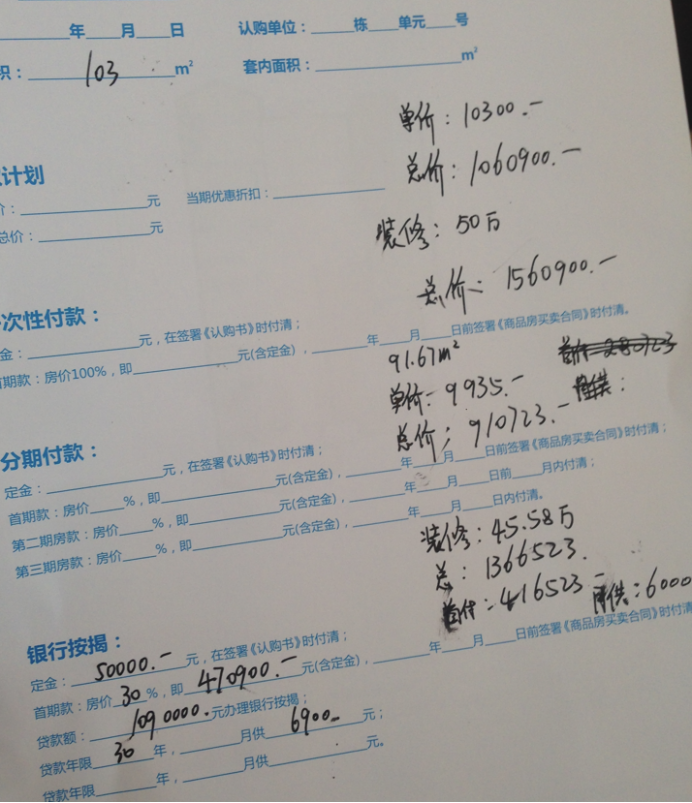 年____月____日 认购单位：____栋____单元____号
积：103 m² 套内面积：____m²
单价：10300.-
总价：1060900.-
计划
价：____元 当期优惠折扣：____
总价：____元
装修：50万
总价：1560900.-
次性付款：
金：____元，在签署《认购书》时付清；
首期款：房价100%，即____元(含定金)，____年____月____日前签署《商品房买卖合同》时付清。
91.67m²
单价：9935.-
总价：910723.-
分期付款：
定金：____元，在签署《认购书》时付清；
首期款：房价____%，即____元(含定金)，____年____月____日前签署《商品房买卖合同》时付清；
第二期房款：房价____%，即____元(含定金)，____年____月____日前____月内付清；
第三期房款：房价____%，即____元(含定金)，____年____月____日内付清。
装修：45.58万
总：1366523.
首付：416523.- 月供：6000
银行按揭：
定金：50000.-元，在签署《认购书》时付清；
首期款：房价30%，即470900.-元(含定金)，____年____月____日前签署《商品房买卖合同》时付清
贷款额：1090000.元办理银行按揭；
贷款年限30年，____月供6900-元；
贷款年限____年，____月供____元。